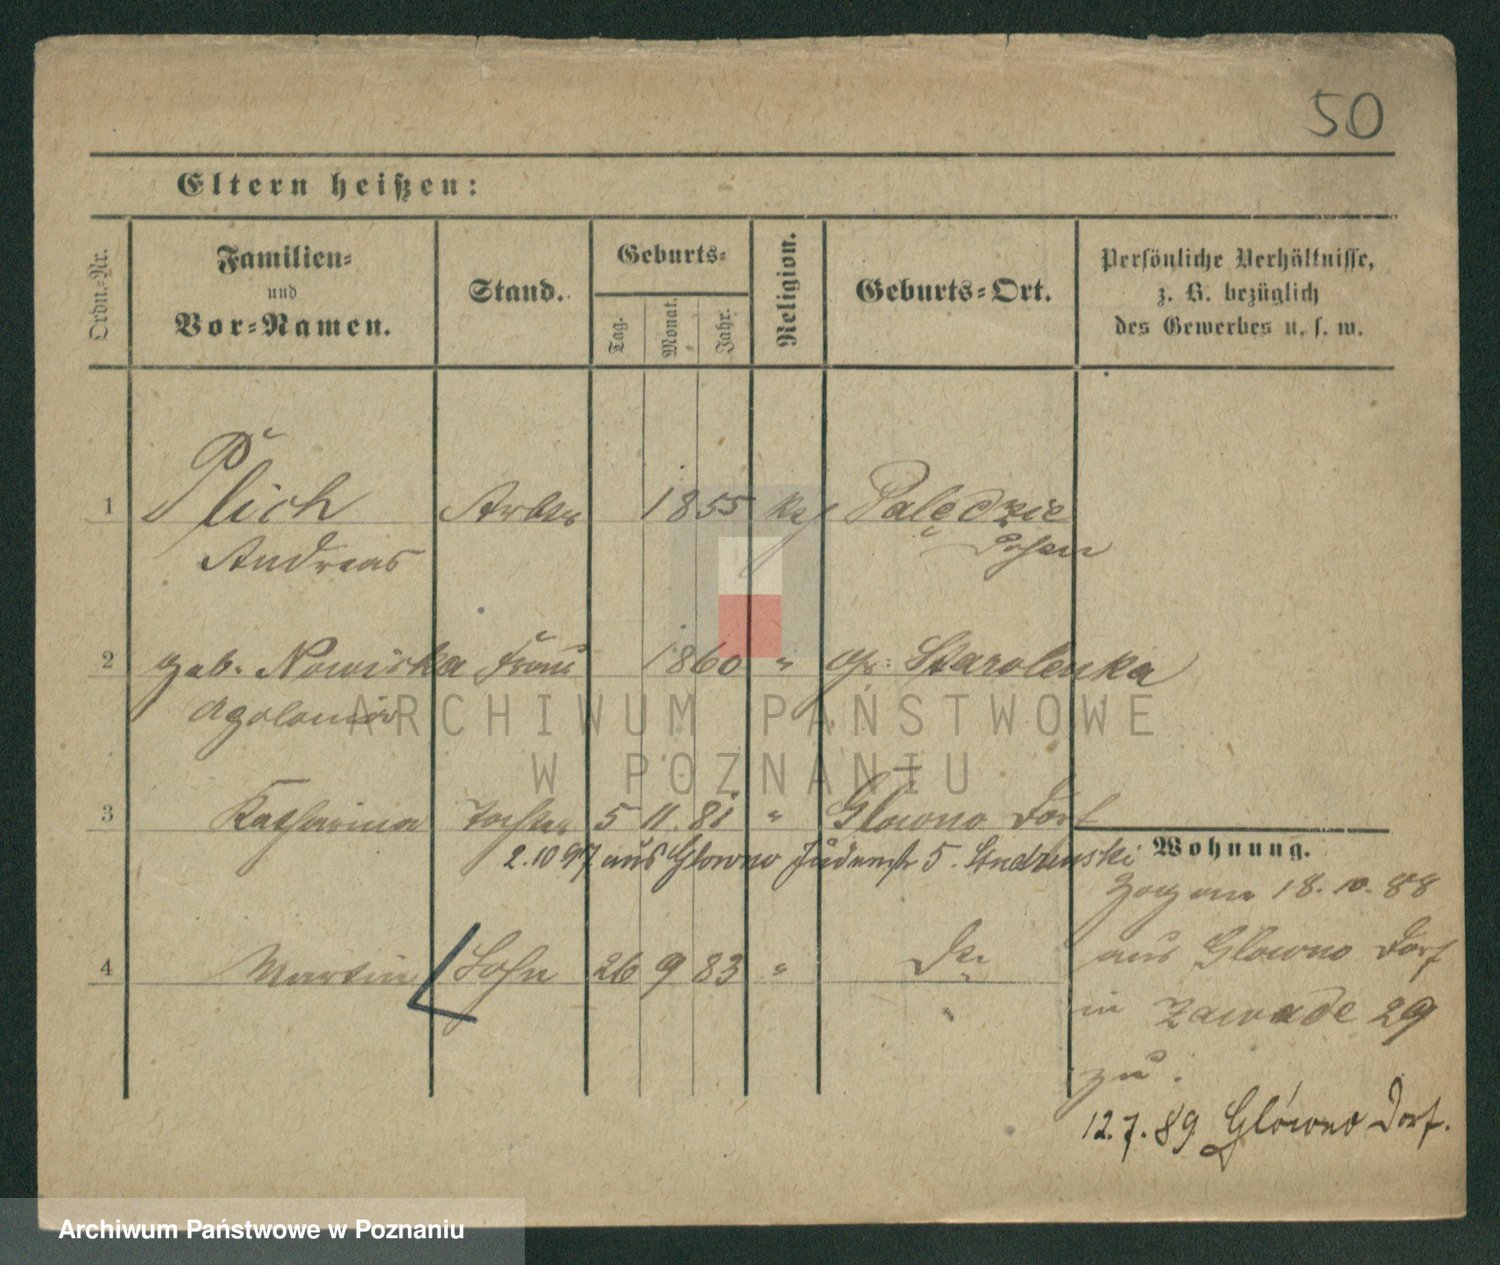 50
Eltern heißen:
Ordn.-Nr.
Familien-
und
Vor-Namen.
Stand.
Geburts-
Tag.
Monat.
Jahr.
Religion.
Geburts-Ort.
Persönliche Verhältnisse,
z. B. bezüglich
des Gewerbes u. s. w.
1 Plich Arbtr 1855 kaf Palędzie
Andreas Posen
2 geb. Nowicka Frau 1860 " Gr: Starolenka
Apolonia
ARCHIWUM PAŃSTWOWE
W POZNANIU
3 Katharina Tochter 5 11. 81 " Glowno Dorf
2.10 97 aus Glowno Judenstr 5.
Wohnung.
Zog am 18. 10. 88
4 Martin Sohn 26 9 83 "
aus Glowno Dorf
in Zawade 29
zu.
12.7.89 Glówno Dorf.
Archiwum Państwowe w Poznaniu